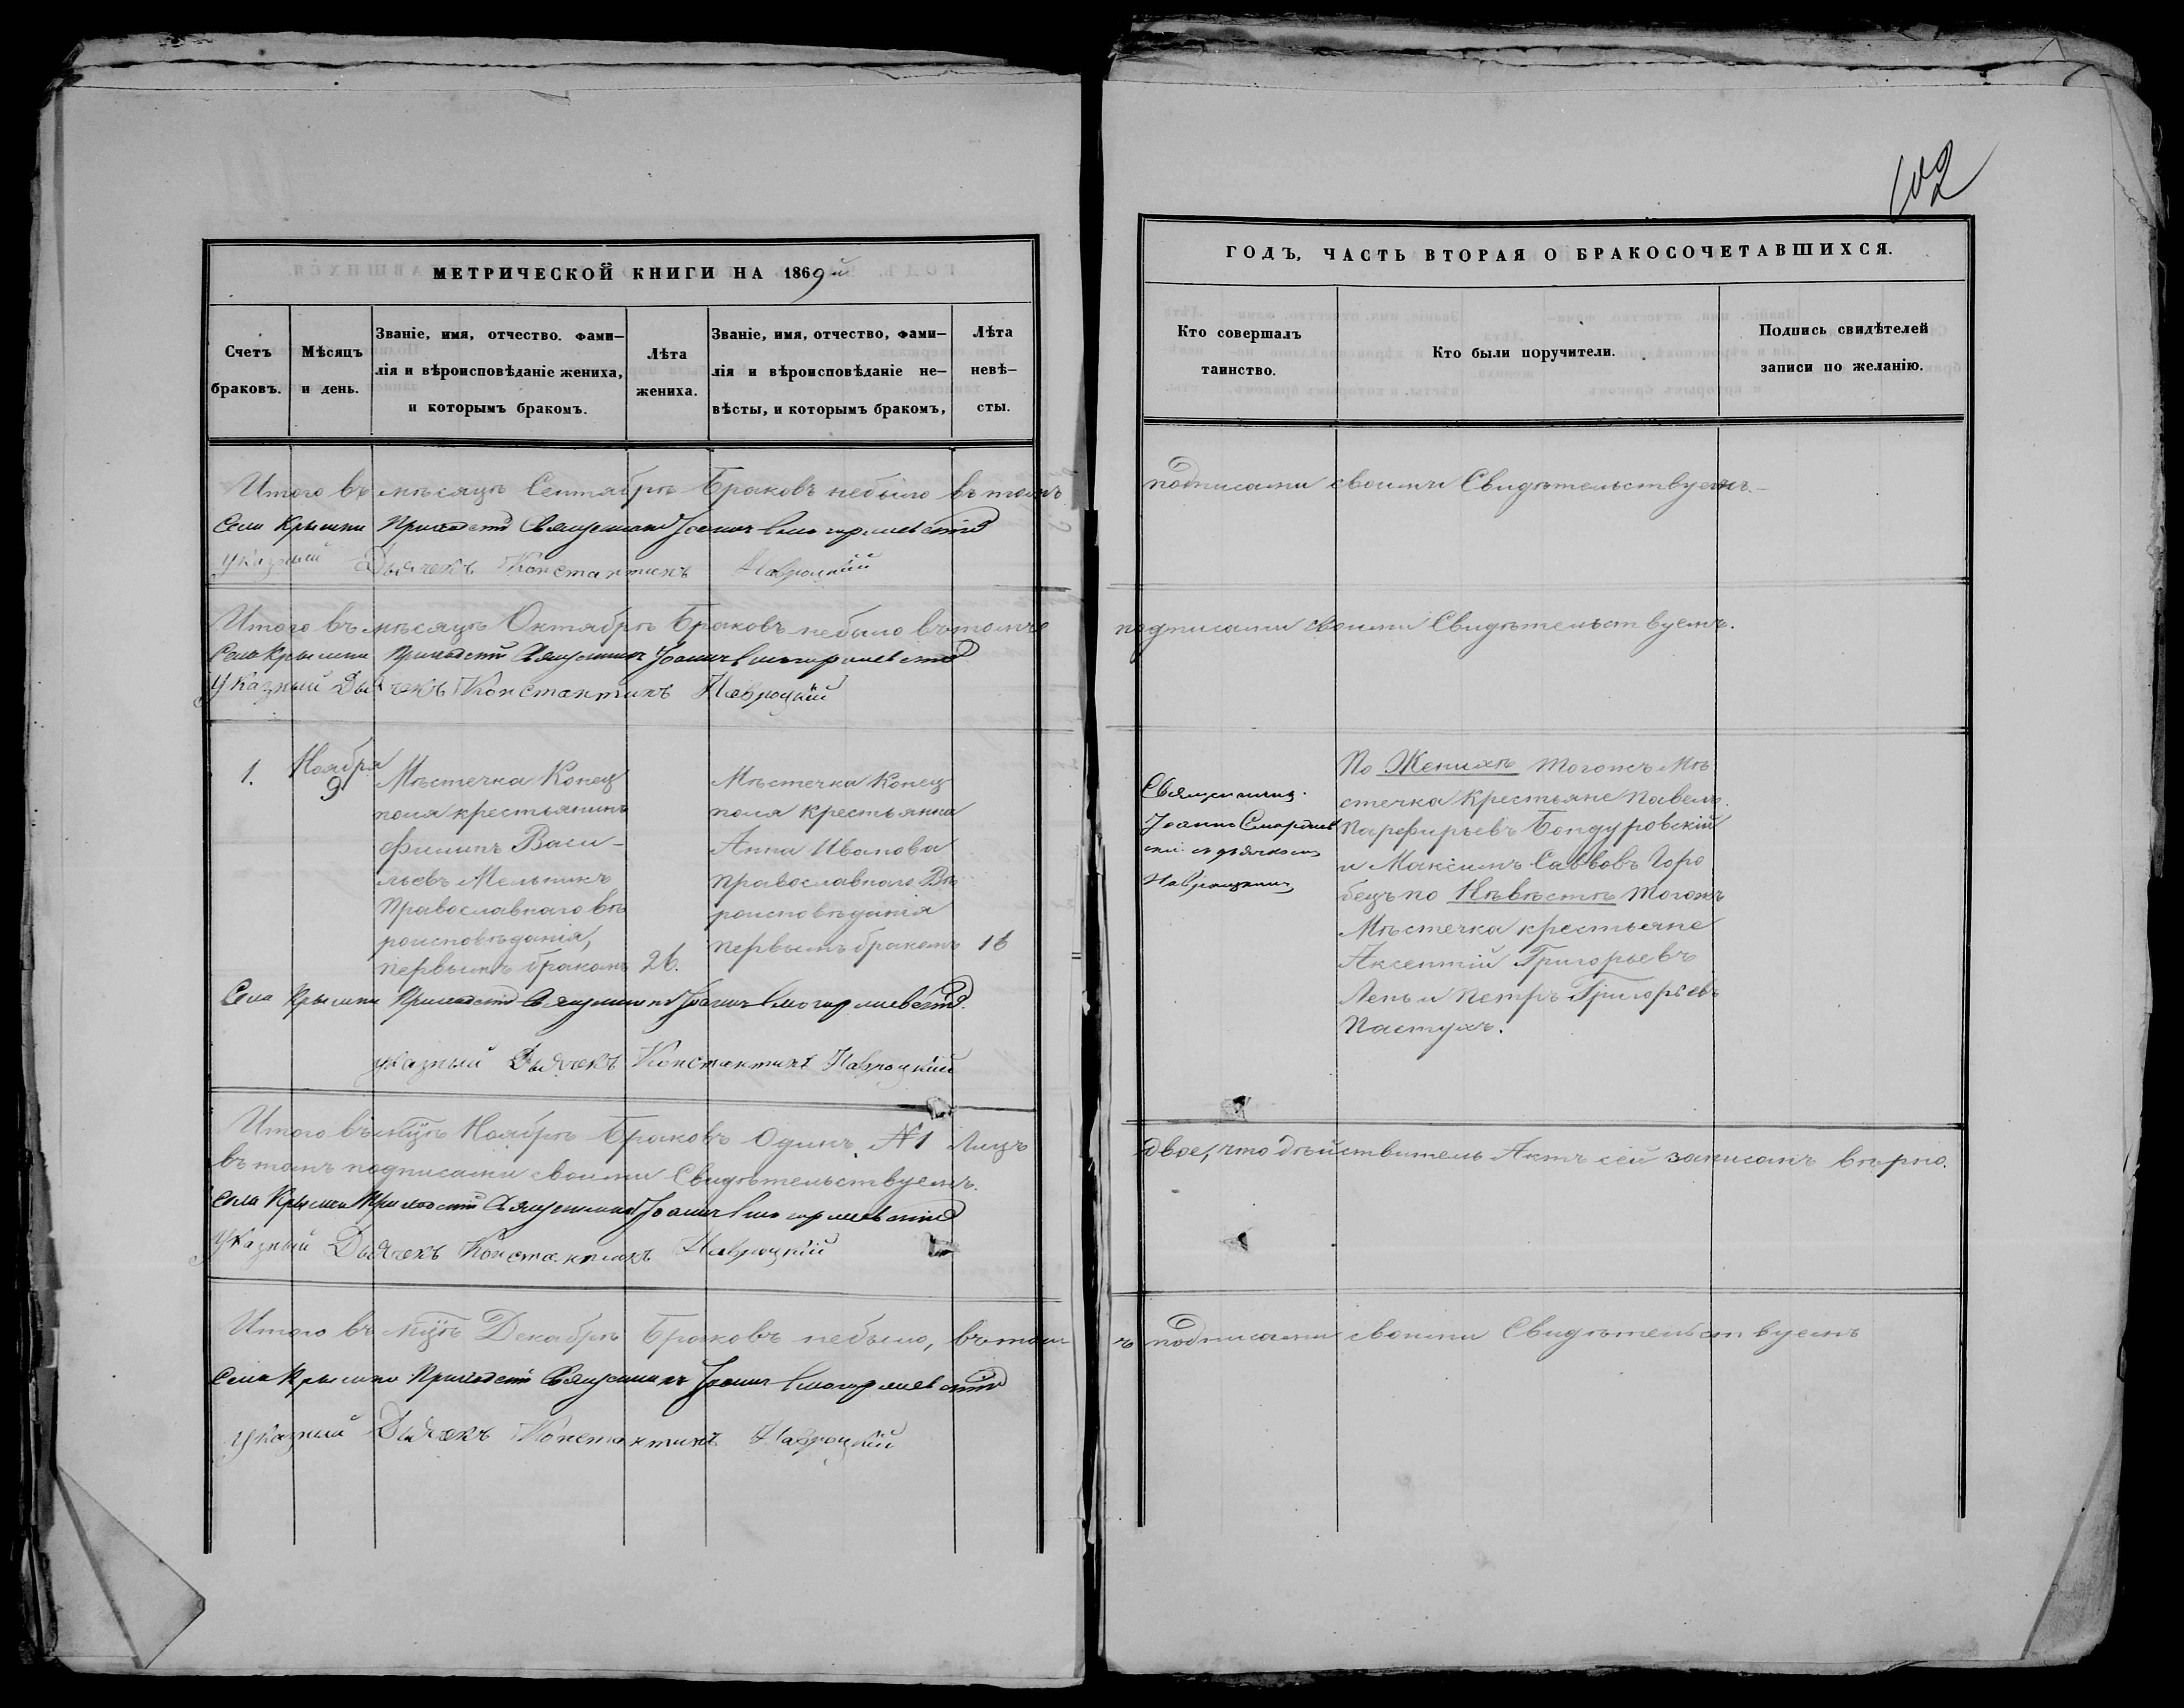 МЕТРИЧЕСКОЙ КНИГИ НА 1869й
Счетъ браковъ.
Мѣсяцъ и день.
Званіе, имя, отчество. фами-
лія и вѣроисповѣданіе жениха,
и которымъ бракомъ.
Лѣта жениха.
Званіе, имя, отчество, фами-
лія и вѣроисповѣданіе не-
вѣсты, и которымъ бракомъ,
Лѣта невѣ-
сты.
Итого въ мѣсяцѣ Сентябрѣ Браковъ небыло въ томъ
Села Крымки Приходскій Священникъ Іоаннъ
Указный Дьячекъ Константинъ Навроцкій
Итого въ мѣсяцѣ Октябрѣ Браковъ небыло въ томъ
Села Крымки Приходскій Священникъ Іоаннъ
Указный Дьячекъ Константинъ Навроцкій
1.
Ноября
9
Мѣстечка Конец
поля крестьянинъ
Филипъ Васи-
льевъ Мельникъ
Православнаго вѣ
роисповѣданія,
первымъ бракомъ
26.
Мѣстечка Конец
поля крестьянка
Анна Иванова
Православнаго Вѣ
роисповѣданія
первымъ бракомъ
16
Села Крымки Приходскій Священникъ Іоаннъ
указный Дьячекъ Константинъ Навроцкій
Итого въ мцѣ Ноябрѣ Браковъ Одинъ, №1 Лицъ
въ томъ подписами своими Свидѣтельствуемъ.
Села Крымки Приходскій Священникъ Іоаннъ
Указный Дьячекъ Константинъ Навроцкій
Итого въ мцѣ Декабрѣ Браковъ небыло, въ том
Села Крымки Приходскій Священникъ Іоаннъ
Указный Дьячекъ Константинъ Навроцкій
102
ГОДЪ, ЧАСТЬ ВТОРАЯ О БРАКОСОЧЕТАВШИХСЯ.
Кто совершалъ
таинство.
Кто были поручители.
Подпись свидѣтелей
записи по желанію.
подписами своими Свидѣтельствуемъ.
подписами своими Свидѣтельствуемъ.
Священникъ
Іоаннъ
съ дьячкомъ
Навроцкимъ
По Женихѣ тогожъ Мѣ
стечка Крестьяне Павелъ
Парфирьевъ Бондуровскій
и Максимъ Саввовъ Горо
бецъ по Невѣстѣ тогожъ
Мѣстечка крестьяне
Аксентій Григорьевъ
Лень и Петръ Григорьевъ
Пастухъ.
двое, что дѣйствитель Актъ сей записанъ вѣрно.
ъ подписами своими Свидѣтельствуемъ